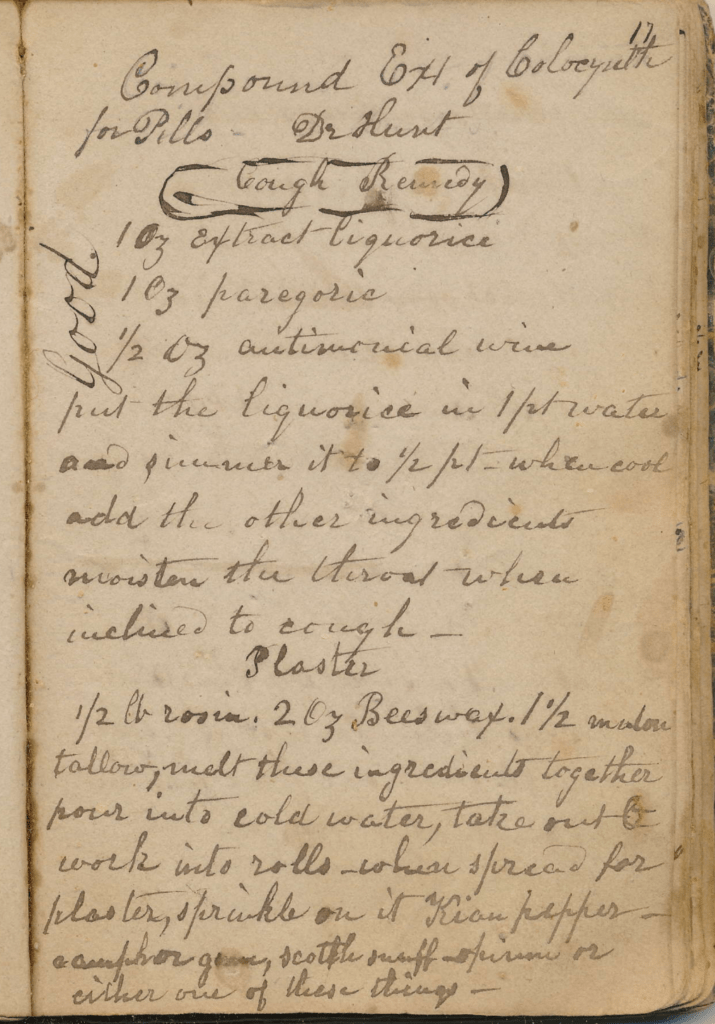 17
Compound Ext of Colocynth
for Pills - Dr Hunt
Cough Remedy
Good
1 Oz extract liquorice
1 Oz paregoric
1/2 Oz antimonial wine
put the liquorice in 1 pt water
and simmer it to 1/2 pt - when cool
add the other ingredients
moisten the throat when
inclined to cough -
Plaster
1/2 lb rosin. 2 Oz Beeswax. 1 1/2 mutton
tallow, melt these ingredients together
pour into cold water, take out &
work into rolls - when spread for
plaster, sprinkle on it Kian pepper -
camphor gum, scotch snuff - opium or
either one of these things -